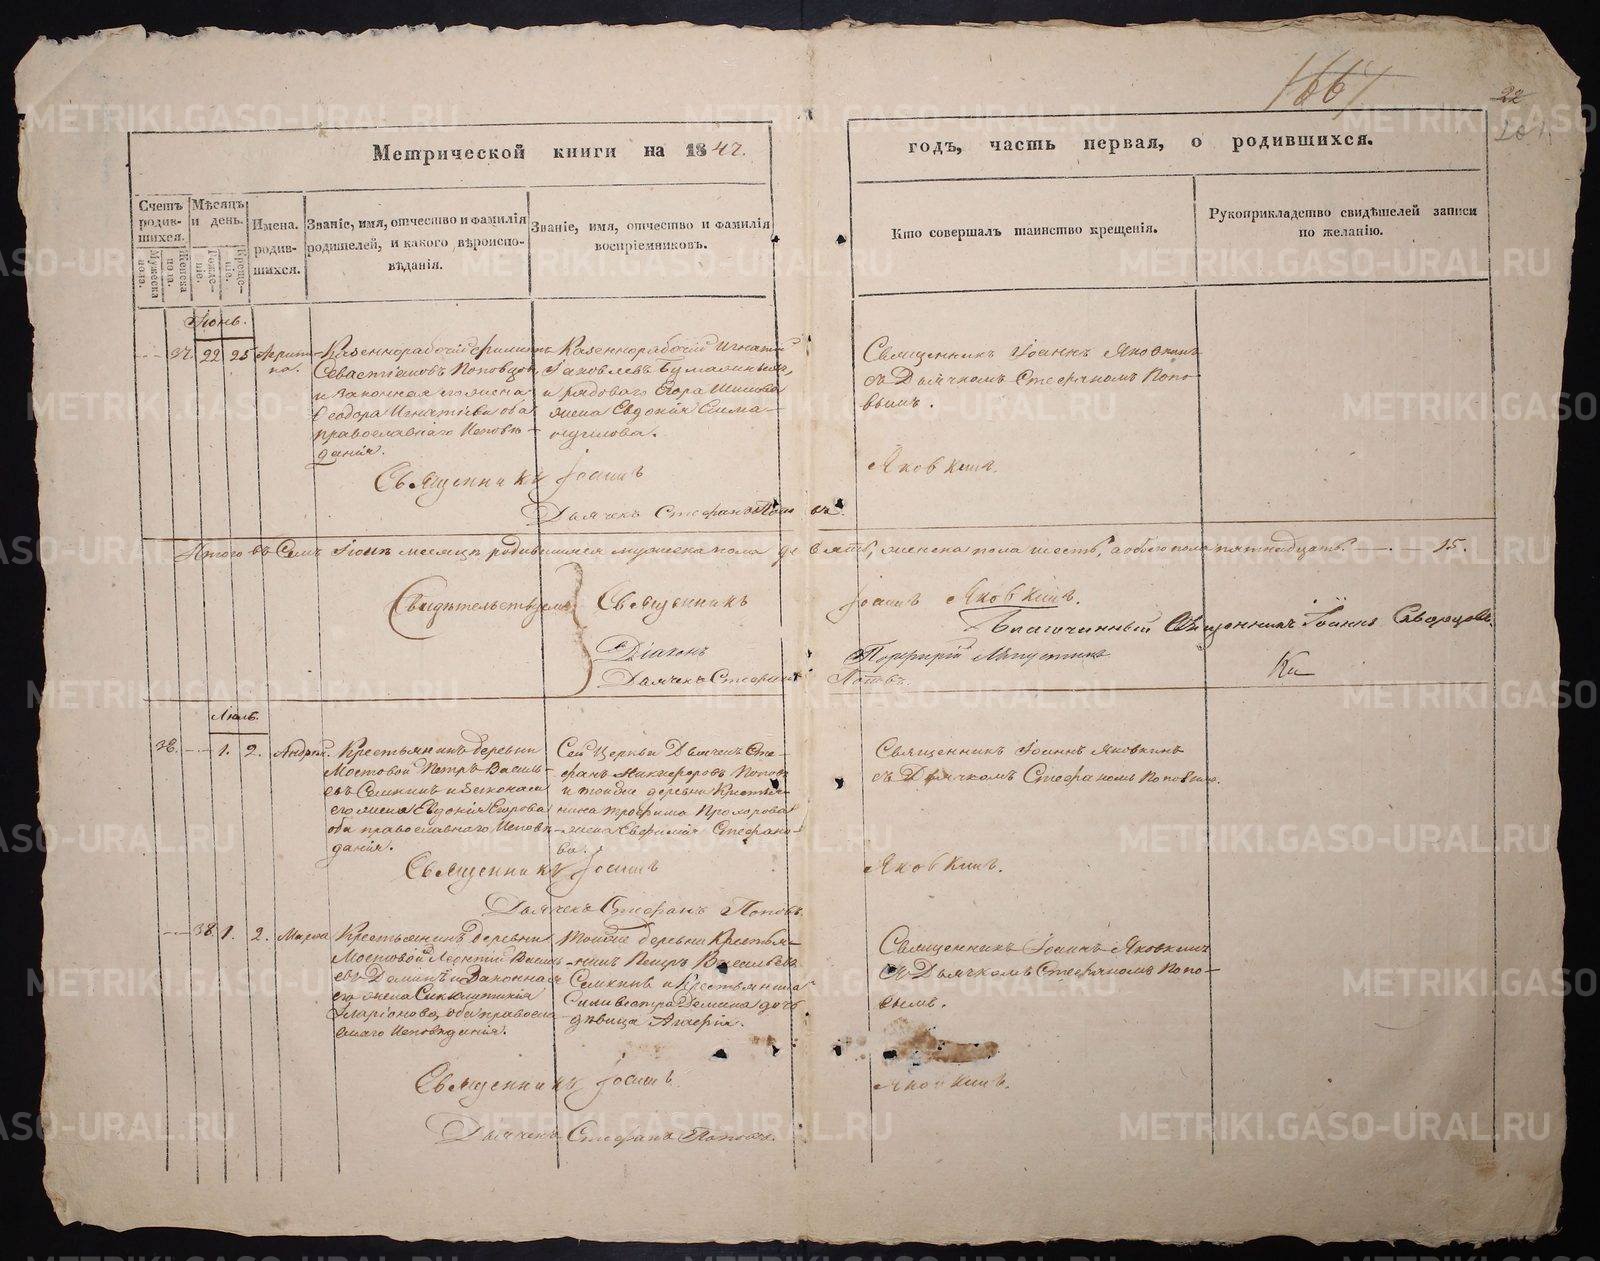 1667
22
Метрической книги на 1847.
годъ, часть первая, о родившихся.
Счетъ родившихся.
Мужеска пола.
Женска пола.
Мѣсяцъ и день.
Рожденіе.
Крещеніе.
Имена родившихся.
Званіе, имя, отчество и фамилія родителей, и какого вѣроисповѣданія.
Званіе, имя, отчество и фамилія воспріемниковъ.
Кто совершалъ таинство крещенія.
Рукоприкладство свидѣтелей записи по желанію.
Іюнь.
37. 22 25
Казеннорабочій Филиппъ
Севастіановъ Поповцовъ,
и законная его жена
Ѳеодора Игнатіева оба
православнаго Исповѣ-
данія.
Казеннорабочій Игнатій
Іаковлевъ
и рядоваго Егора
жена Евдокія
Священникъ Іоаннъ Яковкинъ
съ Дьячкомъ Стефаномъ Попо-
вымъ.
Священникъ Іоаннъ Яковкинъ.
Дьячекъ Стефанъ Поповъ
Итого въ Семъ Іюнѣ месяцѣ родившихся мужеска пола девять, женска пола шесть, а обоего пола пятнадцать. — 15.
Свидѣтельствуемъ
Священникъ Іоаннъ Яковкинъ.
Благочинный Священникъ Іоаннъ
Діаконъ Порфирій
Дьячекъ Стефанъ Поповъ.
Іюль.
38. 1. 2. Андрей.
Крестьянинъ деревни
Мостовой Петръ Василь-
евъ Семкинъ и законная
его жена Евдокія Егорова
оба православнаго Исповѣ-
данія.
Сей Церкви Дьячекъ Сте-
фанъ Никифоровъ Поповъ
и тойже деревни Крестья-
нина Трофима Прохорова
жена Евфимія Стефано-
ва.
Священникъ Іоаннъ Яковкинъ
съ Дьячкомъ Стефаномъ Поповымъ.
Священникъ Іоаннъ Яковкинъ.
Дьячекъ Стефанъ Поповъ.
38. 1. 2. Марѳа
Крестьянинъ деревни
Мостовой Леонтій Василь-
евъ Деминъ и Законная
его жена Синклитикія
Иларіонова, оба правосла-
внаго Исповѣданія.
Тойже деревни Крестья-
нинъ Петръ Васильевъ
Семкинъ и Крестьянина
Сильвестра Демина дочь
дѣвица Агафія.
Священникъ Іоаннъ Яковкинъ
съ Дьячкомъ Стефаномъ Попо-
вымъ.
Священникъ Іоаннъ Яковкинъ.
Дьячекъ Стефанъ Поповъ.
METRIKI.GASO-URAL.RU